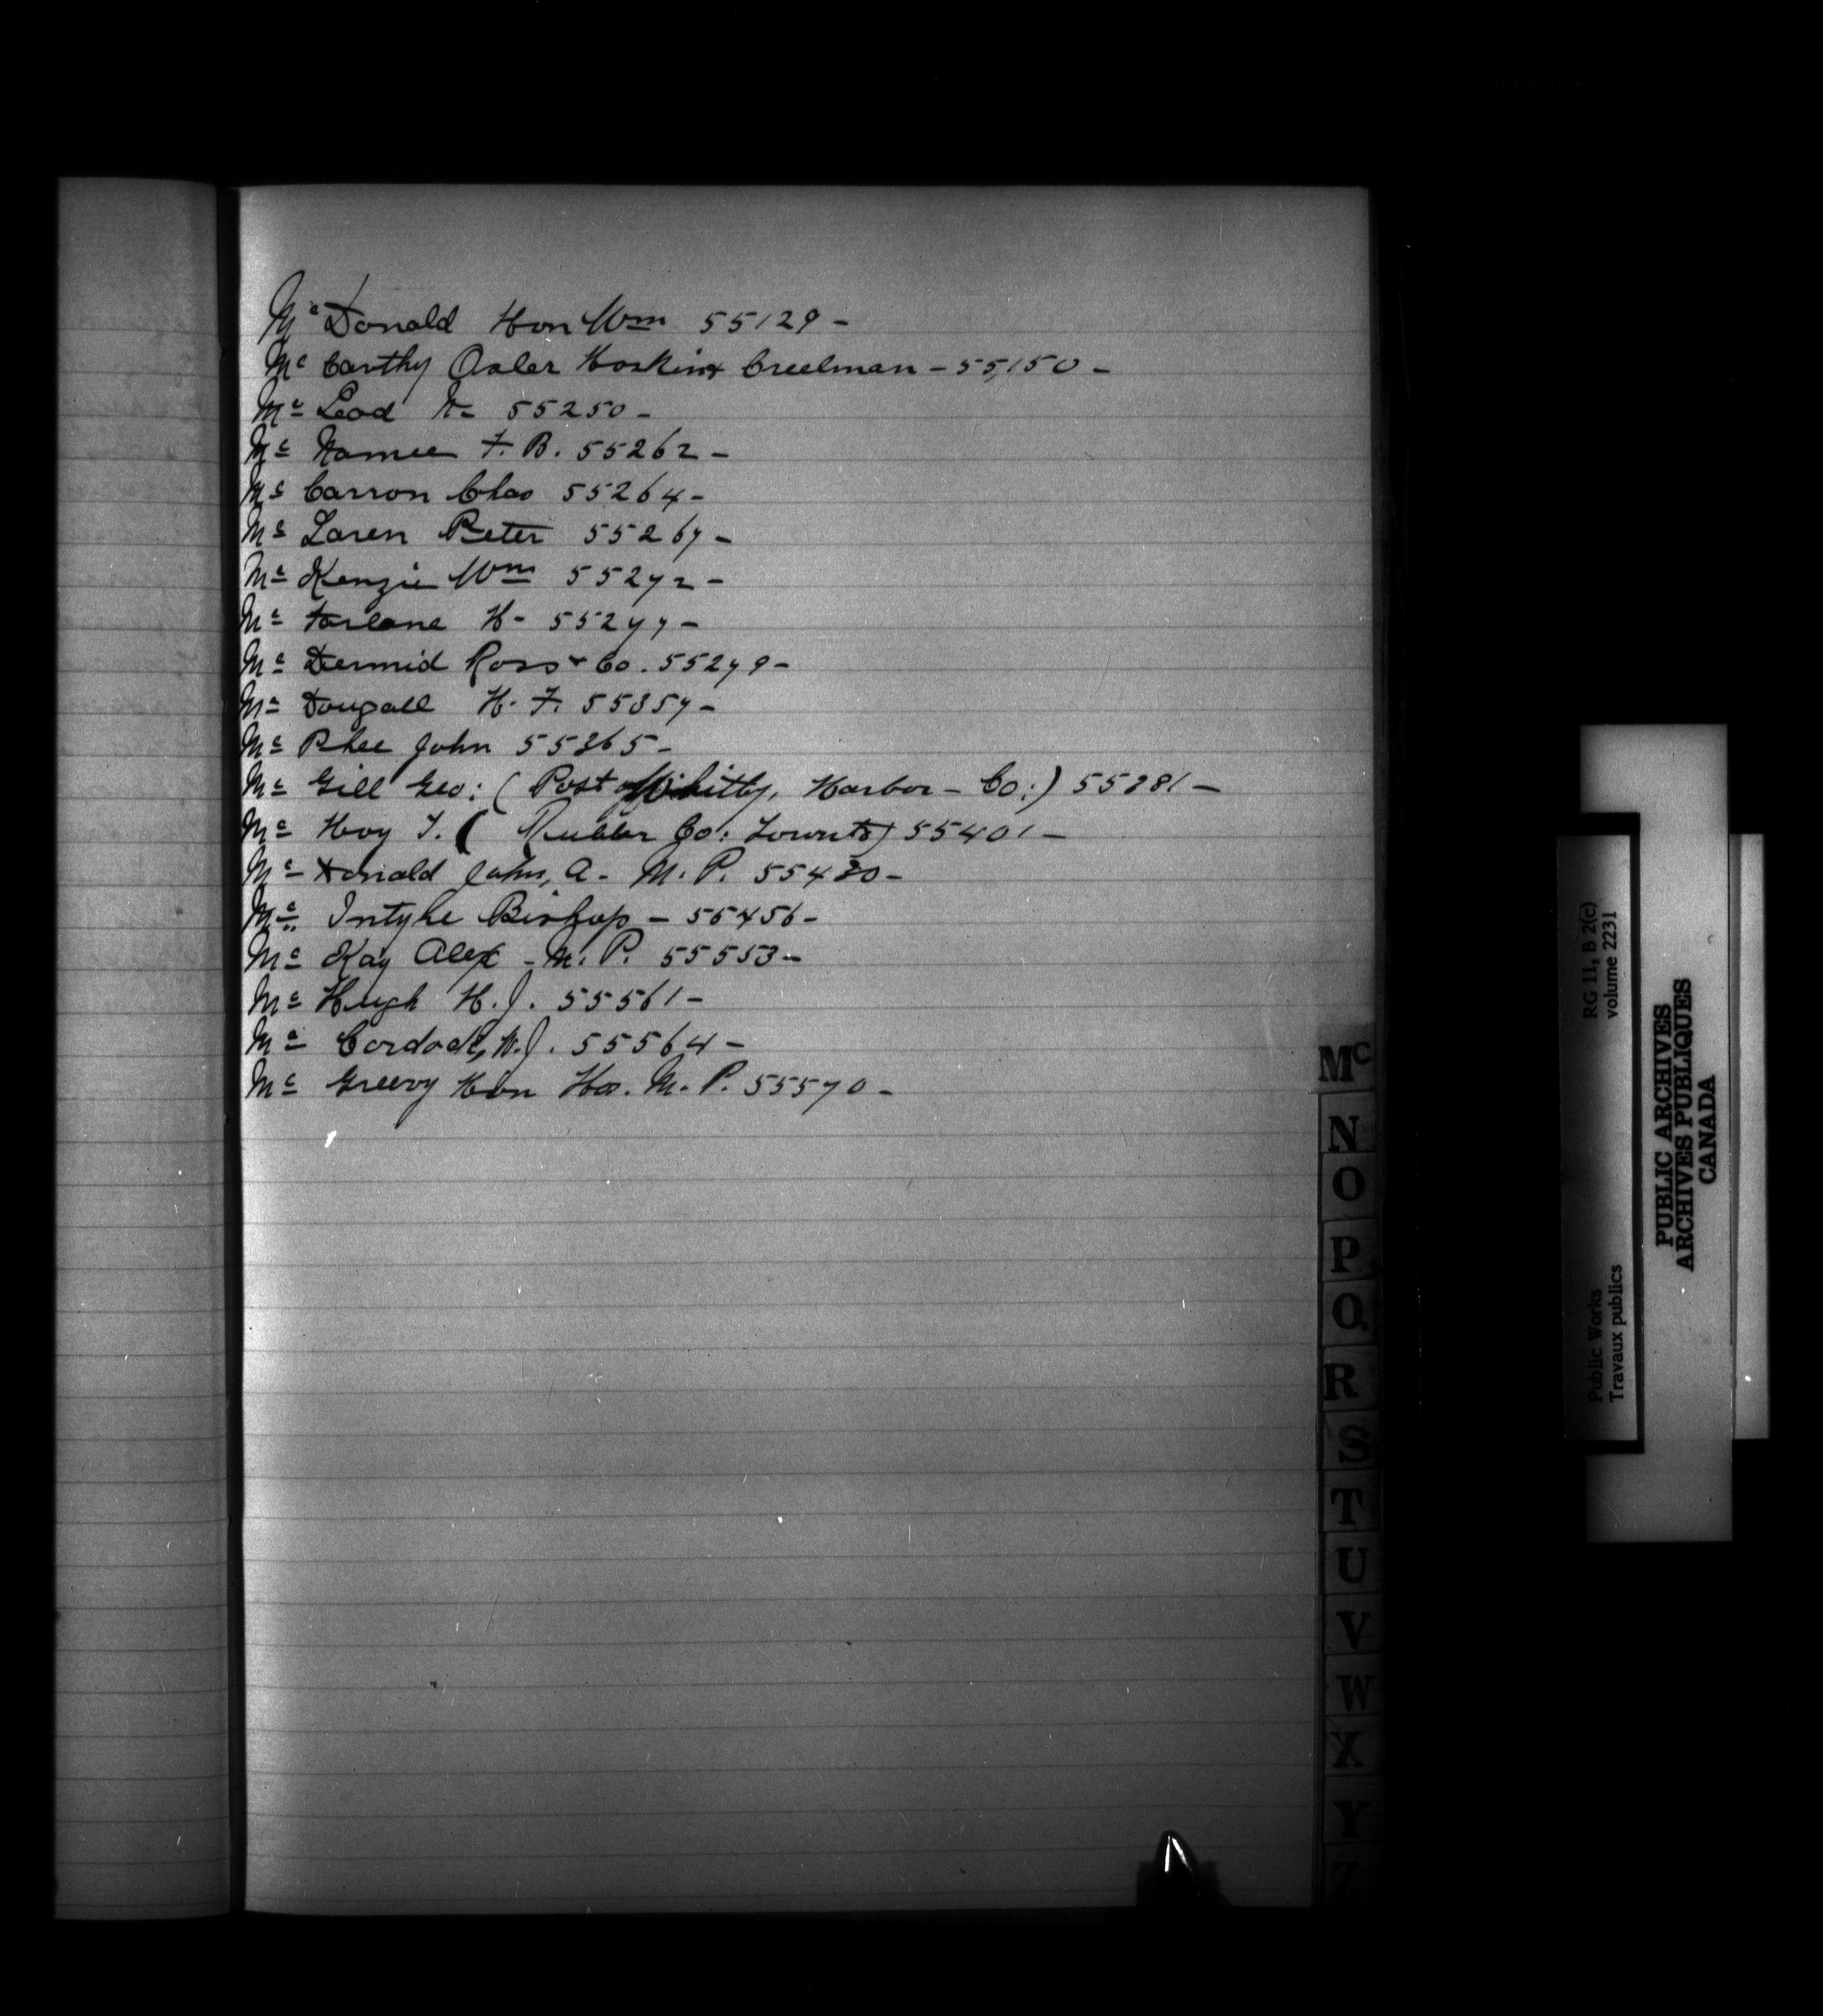 Mc Donald Hon Wm 55129 -
Mc Carthy Osler Hoskin & Creelman - 55,150 -
Mc Leod N- 55250 -
Mc Namee F. B. 55262 -
Mc Carron Chas 55264 -
Mc Laren Peter 55267 -
Mc Kenzie Wm 55272 -
Mc Farlane H- 55277 -
Mc Dermid Ross & Co. 55279 -
Mc Dougall H. F. 55357 -
Mc Phee John 55365 -
Mc Gill Geo: ( Post Whitby, Harbor - Co:) 55381 -
Mc Hoy T. ( Rubber Co: Toronto) 55401 -
Mc Donald John, A - M. P. 55430 -
Mc Intyre Bishop - 55456 -
Mc Kay Alex - M. P. 55553 -
Mc Hugh H. J. 55561 -
Mc Cordock, W. J. 55564 -
Mc Greevy Hon M. P. 55570 -
Mc
N
O
P
Q
R
S
T
U
V
W
X
Y
Z
Public Works
Travaux publics
RG 11, B 2(c)
volume 2231
PUBLIC ARCHIVES
ARCHIVES PUBLIQUES
CANADA